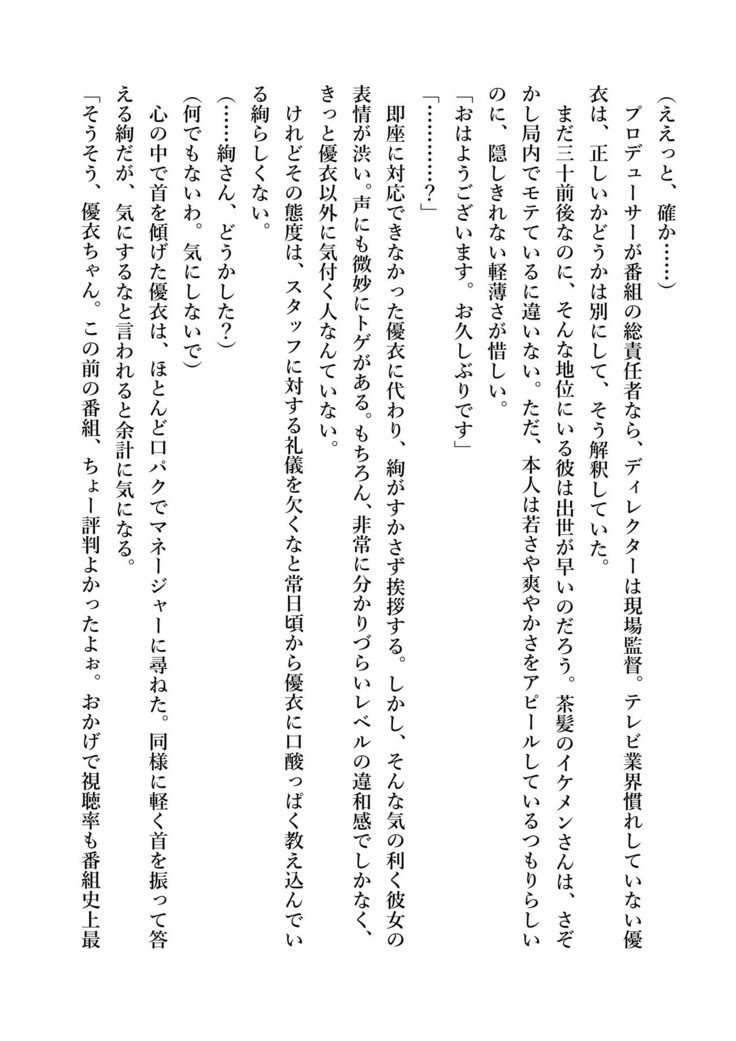 (ええっと、確か……)
　プロデューサーが番組の総責任者なら、ディレクターは現場監督。テレビ業界慣れしていない優
衣は、正しいかどうかは別にして、そう解釈していた。
　まだ三十前後なのに、そんな地位にいる彼は出世が早いのだろう。茶髪のイケメンさんは、さぞ
かし局内でモテているに違いない。ただ、本人は若さや爽やかさをアピールしているつもりらしい
のに、隠しきれない軽薄さが惜しい。
「おはようございます。お久しぶりです」
「…………？」
　即座に対応できなかった優衣に代わり、絢がすかさず挨拶する。しかし、そんな気の利く彼女の
表情が渋い。声にも微妙にトゲがある。もちろん、非常に分かりづらいレベルの違和感でしかなく、
きっと優衣以外に気付く人なんていない。
　けれどその態度は、スタッフに対する礼儀を欠くなと常日頃から優衣に口酸っぱく教え込んでい
る絢らしくない。
(……絢さん、どうかした？)
(何でもないわ。気にしないで)
　心の中で首を傾げた優衣は、ほとんど口パクでマネージャーに尋ねた。同様に軽く首を振って答
える絢だが、気にするなと言われると余計に気になる。
「そうそう、優衣ちゃん。この前の番組、ちょー評判よかったよぉ。おかげで視聴率も番組史上最